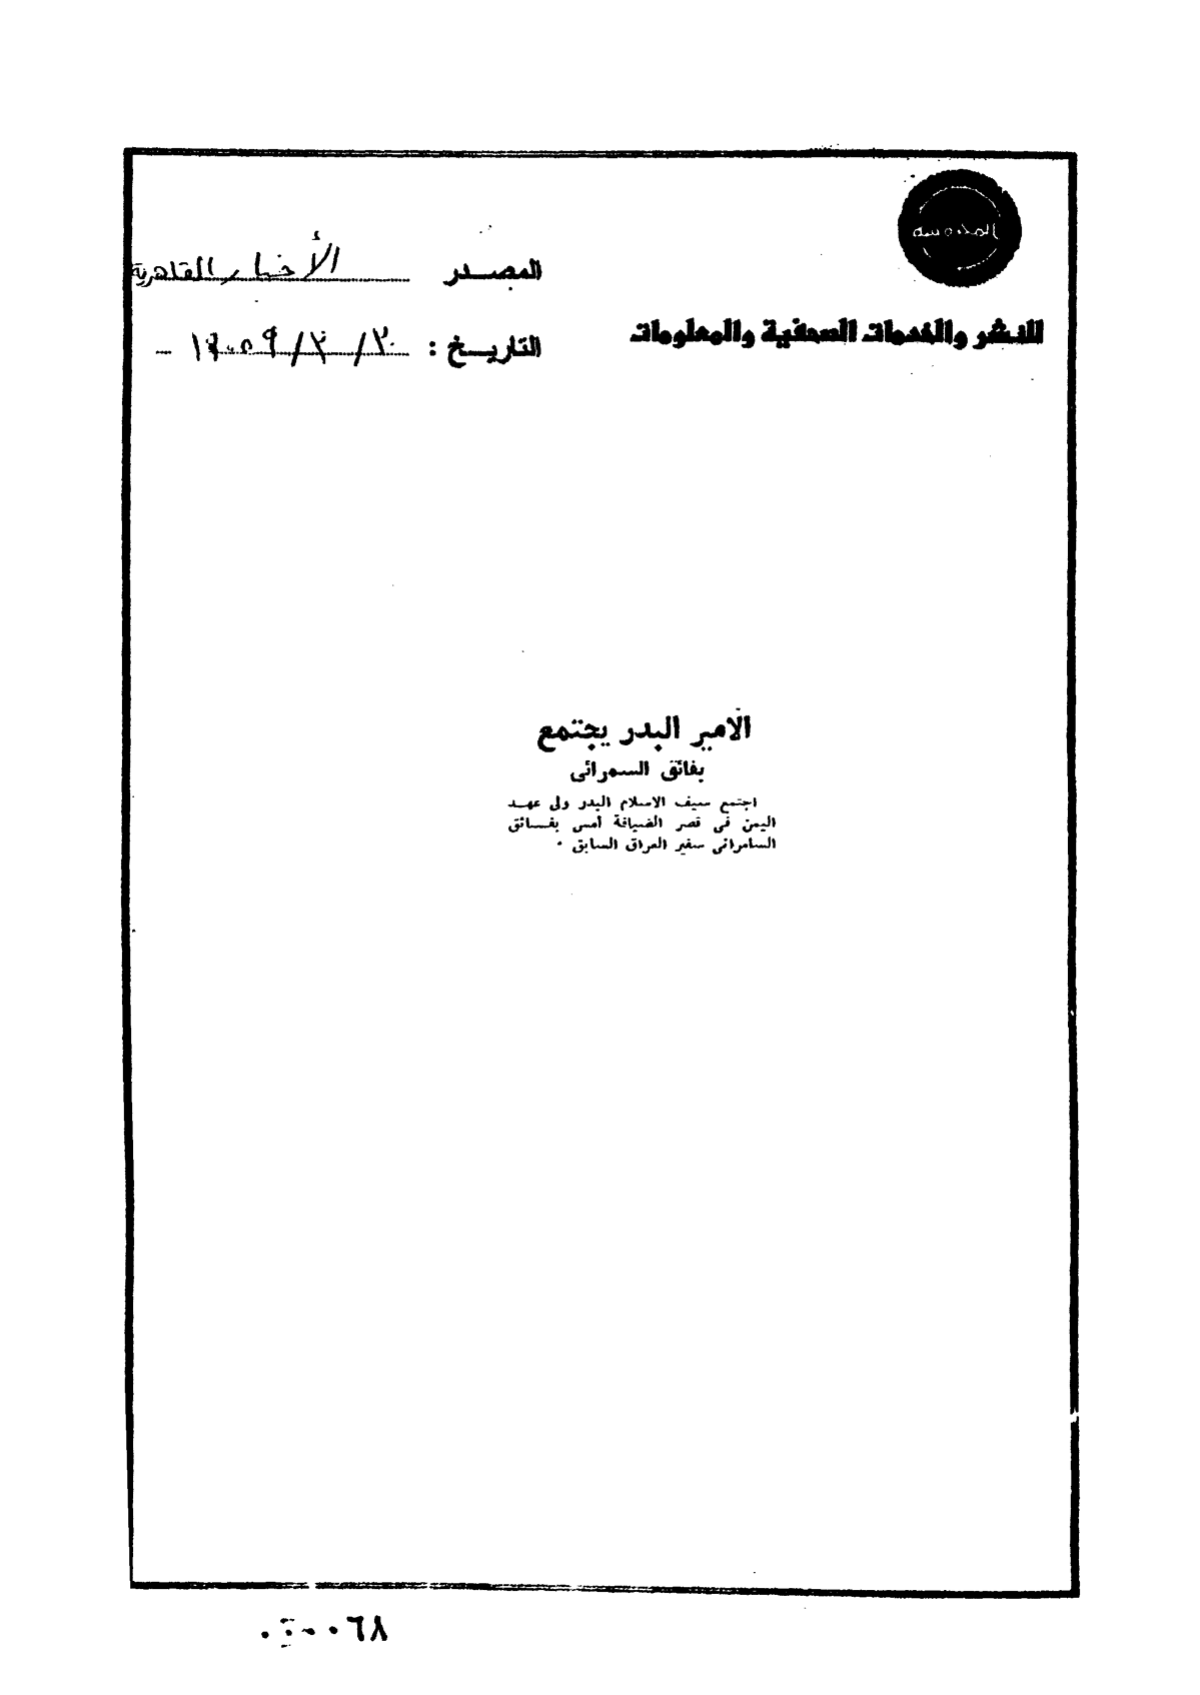 المصدر الأخبار القاهرية
للنشر والخدمات الصحفية والمعلومات
التاريخ :
الامير البدر يجتمع
بفائق السمرائى
اجتمع سيف الاسلام البدر ولى عهد
اليمن فى قصر الضيافة أمس بفائق
السامرائى سفير العراق السابق .